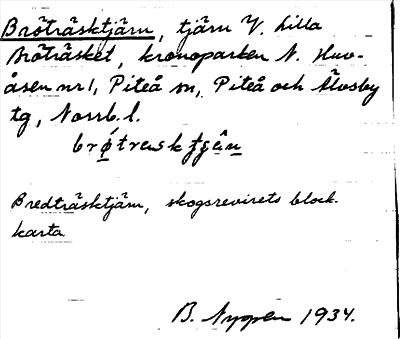 Bröträsktjärn, tjärn V. Lilla
Bröträsket, kronoparken N. Huv-
åsen nr 1, Piteå sn, Piteå och Älvsby
tg, Norrb. l.
Bredträsktjärn, skogsrevirets block-
karta.
B. Nygren 1934.